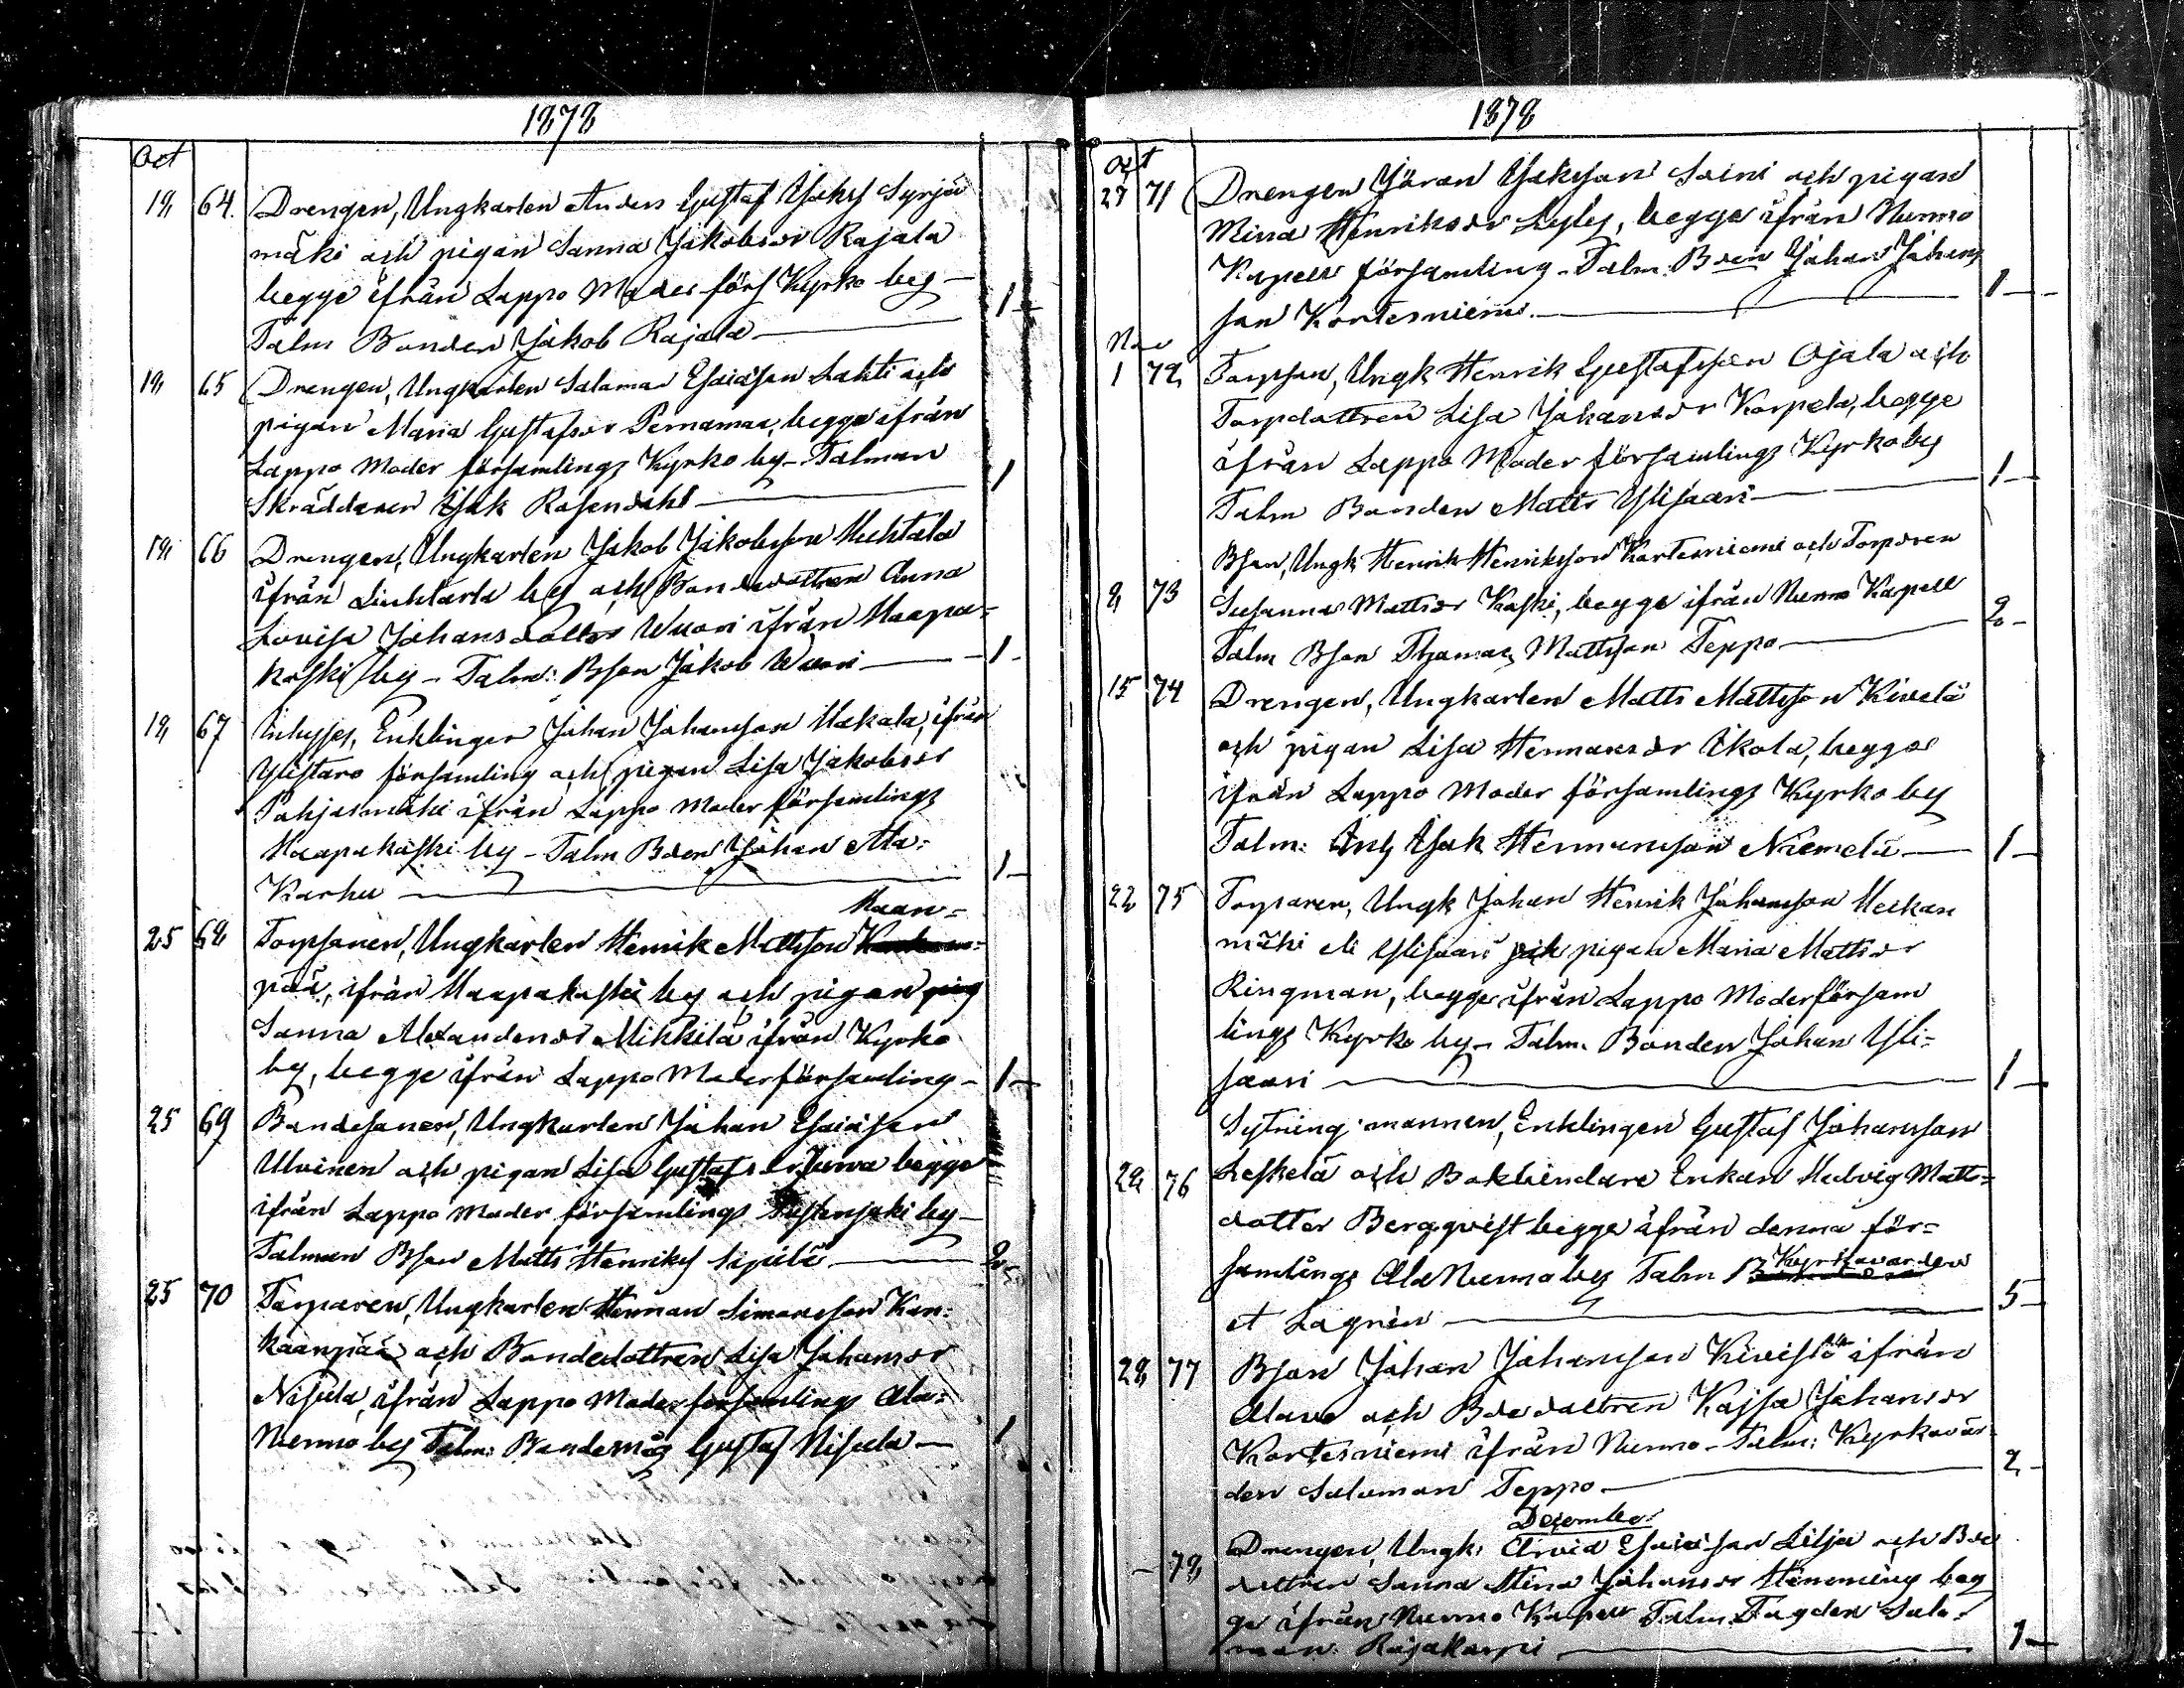 1878
Oct
18 64. Drengen, Ungkarlen Anders Gustaf Isaks Syrjä
mäki och pigan Sanna Jakobsdr Rajala
begge ifrån Lappo Moder förs Kyrko by -
Talm Bonden Jakob Rajala 1
18 65 Drengen, Ungkarlen Salamon Esaiasson Lahti och
pigan Maria Gustafsdr Pernamaa, begge ifrån
Lappo Moder församlings Kyrko by - Talman
Skräddaren Isak Rosendahl 1
18 66 Drengen, Ungkarlen Jakob Jakobsson Huhtala
ifrån Liuhtarla by och Bondedottren Anna
Lovisa Johansdotter Wuori ifrån Haapa=
koski by - Talm: Bson Jakob Wuori 1
18 67 Inhyses, Enklingen Johan Johansson Hakala, ifrån
Ylistaro församling och pigan Lisa Jakobsdr
Pohjasmäki ifrån Lappo Moder församlings
Haapakoski by - Talm Bden Johan Ala=
Karhu 1
Haan=
25 68 Torpsonen, Ungkarlen Henrik Mattsson
pää, ifrån Haapakoski by och pigan pig
Sanna Alexandersdr Mikkilä ifrån Kyrko
by, begge ifrån Lappo Moderförsamling - 1
25 69 Bondesonen, Ungkarlen Johan Esaiasson
Ulvinen och pigan Lisa Gustafsdr Jurva begge
ifrån Lappo Moder församlings Tiistenjoki by
Talman Bson Matts Henriks Sipilä 2
25 70 Torparen, Ungkarlen Herman Simonsson Kan=
kaanpää och Bondedottren Lisa Johansdr
Nisula, ifrån Lappo Moder församlings Ala=
Nurmo by Talm: Bondemåg Gustaf Nisula 1
1878
Oct
27 71 Drengen Jöran Isaksson Saini och pigan
Mina Henriksdr Lyly, begge ifrån Nurmo
Kapell församling - Talm. Bden Johan Johans
son Kortesniemi. 1
Nov
1 72 Torpson, Ungk Henrik Gustafsson Ojala och
Torpdottren Lisa Johansdr Karpela, begge
ifrån Lappo Moder församlings Kyrkoby
Talm Bonden Matts Ylisaari 1
Bson, Ungk Henrik Henriksson Kortesniemi och Torpdren
8 73 Susanna Mattsdr Koski, begge ifrån Nurmo Kapell
Talm Bson Thomas Mattsson Teppo 2
15 74 Drengen, Ungkarlen Matts Mattsson Kivelä
och pigan Lisa Hermansdr Ikola, begge
ifrån Lappo Moder församlings Kyrko by
Talm: Inh Isak Hermansson Niemelä 1
22 75 Torparen, Ungk Johan Henrik Johansson Heikan
mäki el Ylisaari och pigan Maria Mattsdr
Ringman, begge ifrån Lappo Moderförsam
lings Kyrko by - Talm. Bonden Johan Yli=
saari 1
Sytningsmannen, Enklingen Gustaf Johansson
28 76 Leskelä och Bokbindare Enkan Hedvig Matts=
dotter Bergqvist begge ifrån denna för=
samlings Ala Nurmo by Talm Kyrkovärden
et Lagrén 5
28 77 Bson Johan Johansson Kivistö ifrån
Alavo och Bdedottren Kajsa Johansdr
Kortesniemi ifrån Nurmo - Talm: Kyrkovär
den Salomon Teppo 2
December
- 78 Drengen, Ungk: Arvid Esaiasson Lilja och Bde
dottren Sanna Stina Johansdr Hemming beg
ge ifrån Nurmo Kapell Talm. Fogden Salo=
mon Rajakorpi 1